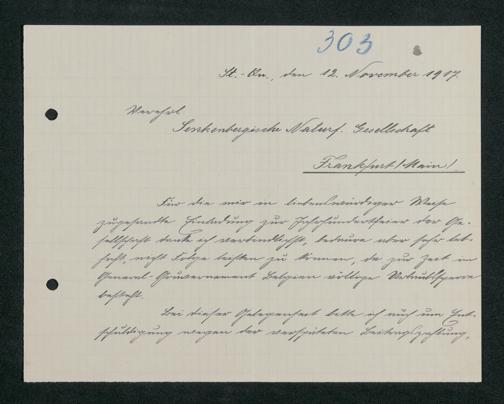 303
St.-Qu., den 12. November 1917.
Verehrl
Senkenbergische Naturf. Gesellschaft
Frankfurt/Main/
Für die mir in liebenswürdiger Weise
zugesandte Einladung zur Jahrhundertfeier der Ge-
sellschaft danke ich verbindlichst, bedaure aber sehr leb-
haft, nicht Folge leisten zu können, da zur Zeit im
General-Gouvernement Belgien völlige Urlaubssperre
besteht.
Bei dieser Gelegenheit bitte ich auch um Ent-
schuldigung wegen der verspäteten Beitragszahlung,